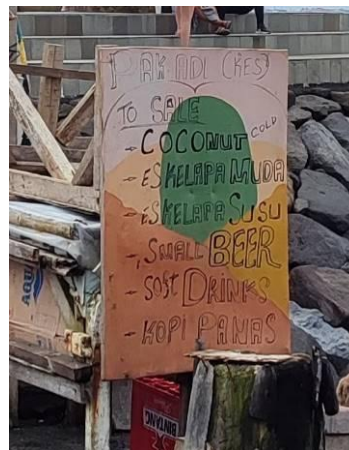 PAK ADI (KES)
TO SALE
- COCONUT COLD
- ES KELAPA MUDA
- ES KELAPA SUSU
- SMALL BEER
- SOST DRINKS
- KOPI PANAS
AQUA
BINTANG